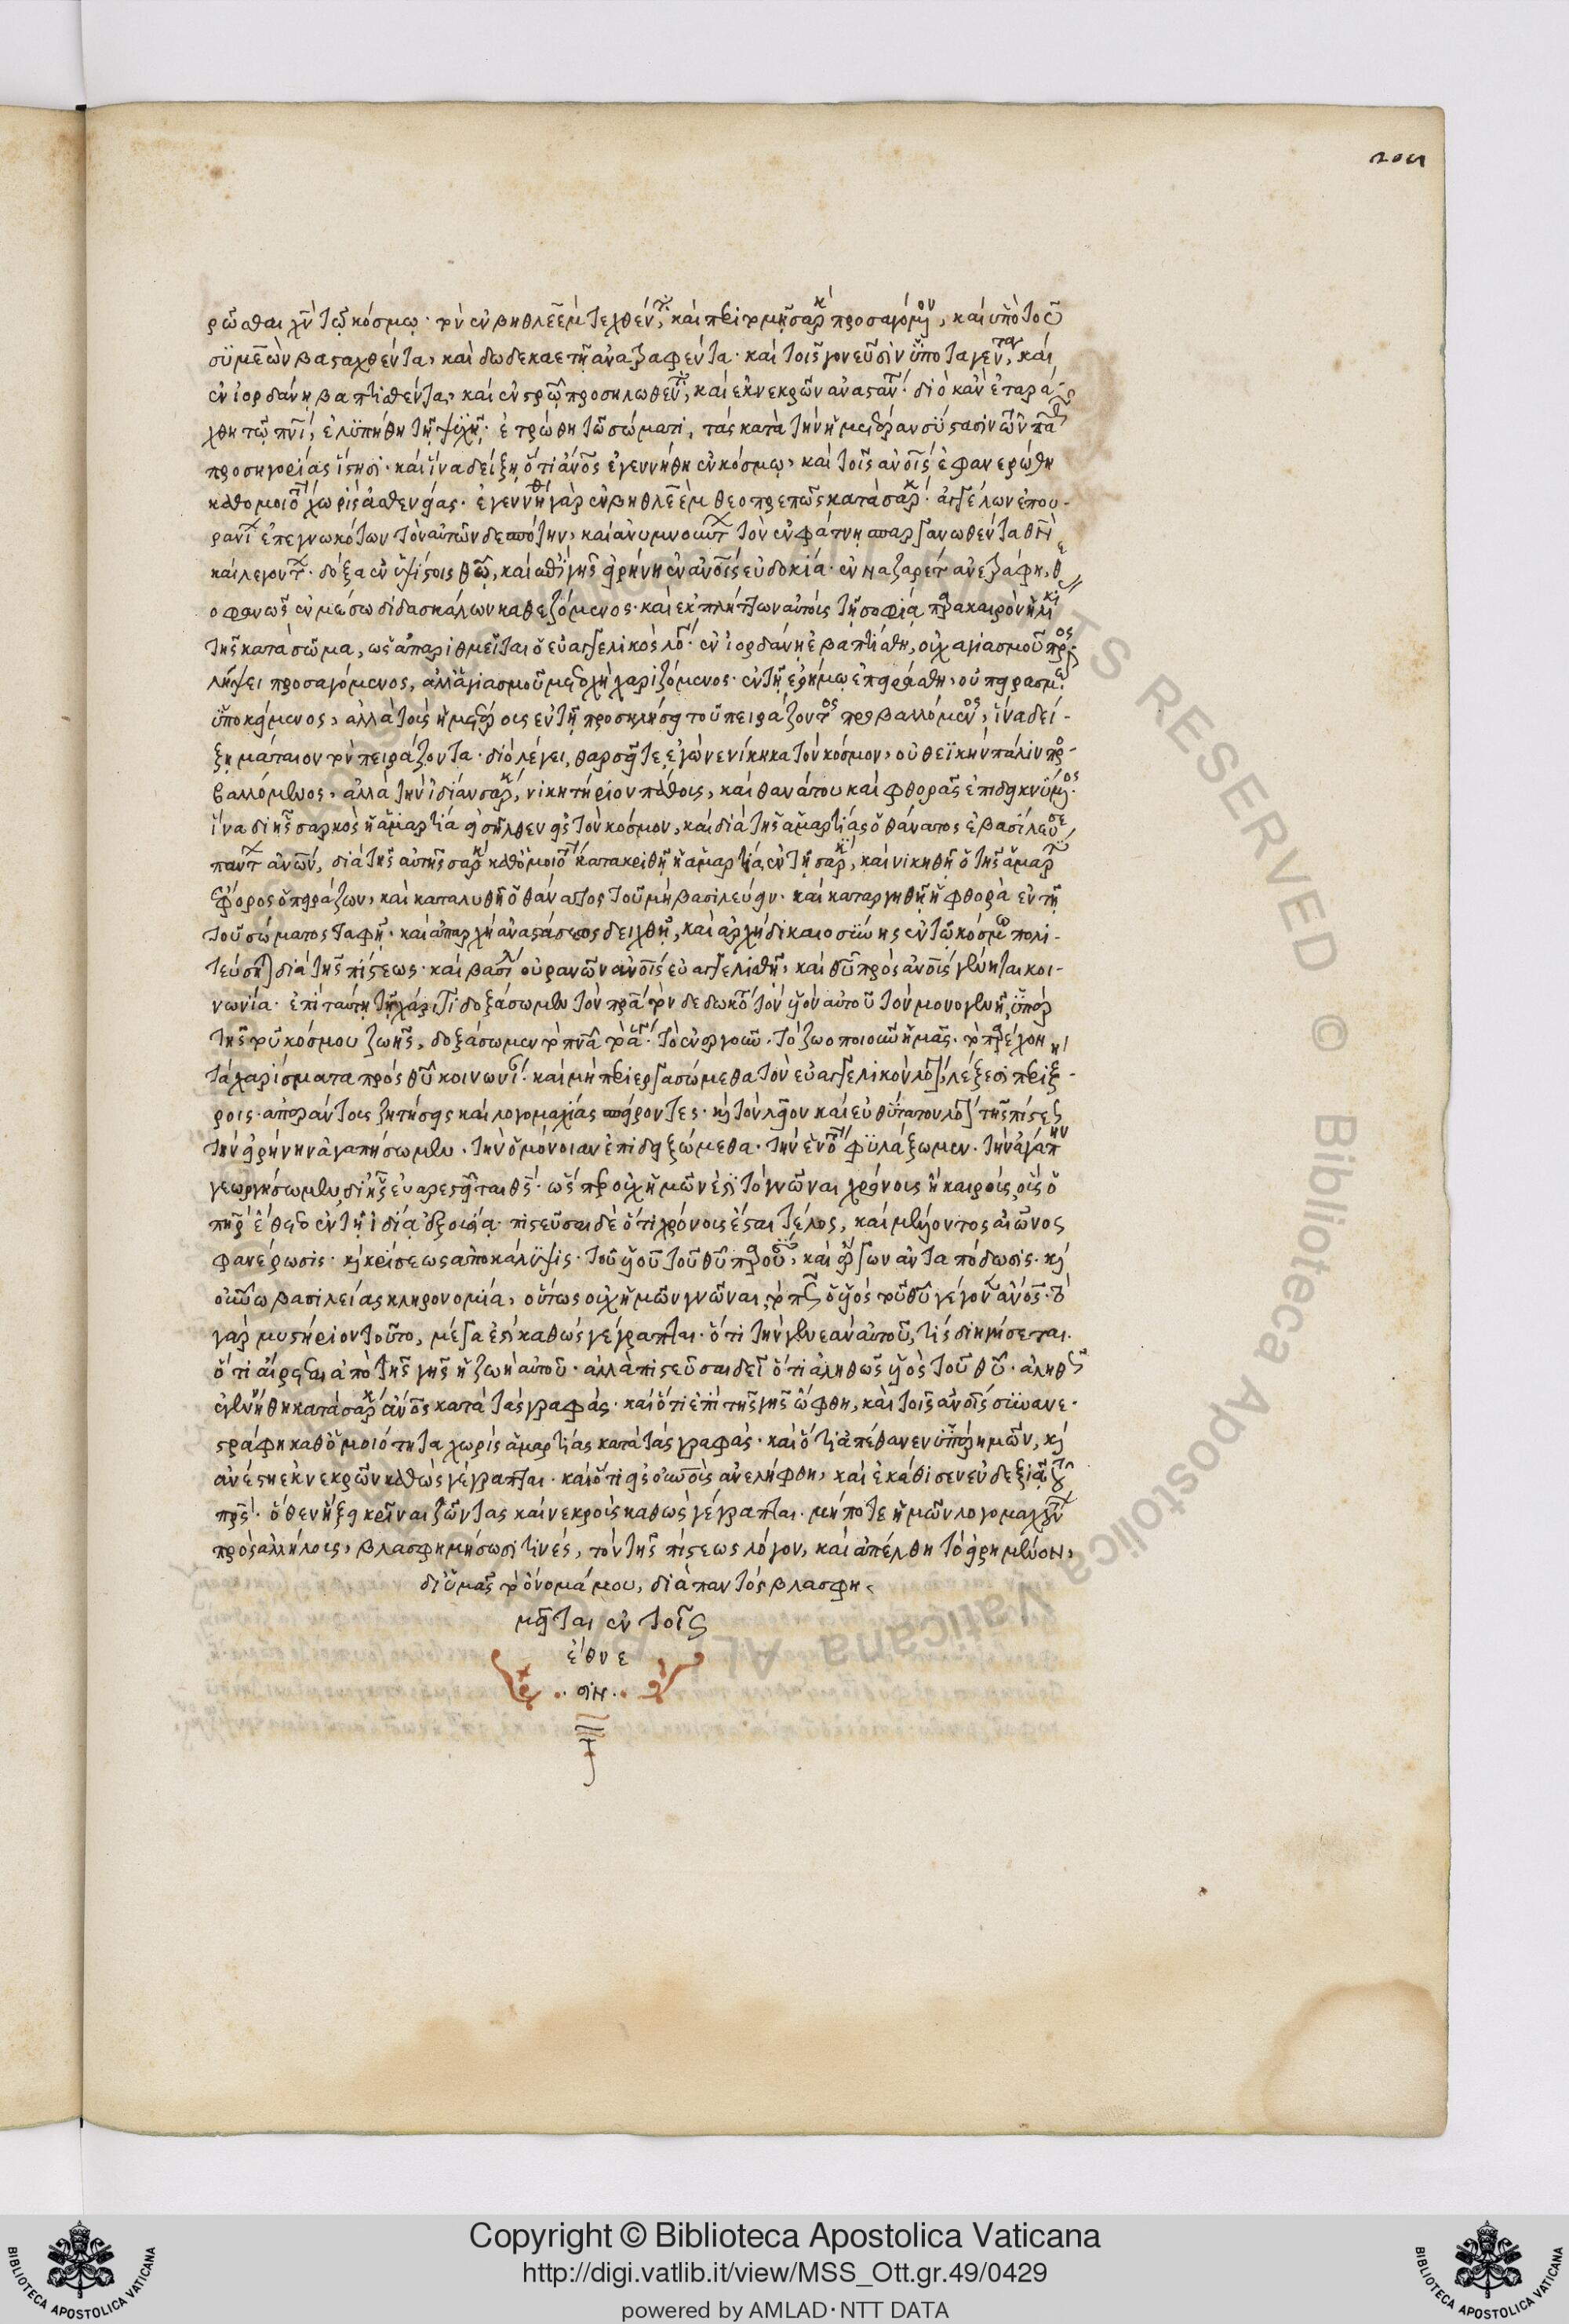 204
ρῶσθαι χ̅ν̅ τῷ κόσμῳ· τὸν ἐν βηθλεὲμ τεχθέντ, καὶ περιτμηθ σαρκ προσαγόμενον, καὶ ὑπὸ τοῦ
συμεὼν βασταχθέντα, καὶ δωδεκαετῆ ἀναγραφέντα· καὶ τοῖς γονεῦσιν ὑποταγέντα, καὶ
ἐν ἰορδάνῃ βαπτισθέντα, καὶ ἐν στρῷ προσηλωθέντ, καὶ ἐκ νεκρῶν ἀναστάντ· διὸ κἂν ἐταρά
χθη τῷ πνι, ἐλυπήθη τῇ ψυχῇ· ἐτρώθη τῷ σώματι, τὰς κατὰ τὴν ἡμετέραν σύστασιν
προσηγορίας ἵστησι· καὶ ἵνα δείξῃ ὅτι ἀνος ἐγεννήθη ἐν κόσμῳ, καὶ τοῖς ἀνοις ἐφανερώθη
καθομοιοτ χωρὶς ἀσθενείας· ἐγεννήθη γὰρ ἐν βηθλεὲμ θεοπρεπῶς κατὰ σαρκ· ἀγγέλων ἐπου-
ρανί ἐπεγνωκότων τὸν αὐτῶν δεσπότην, καὶ ἀνυμνούντ τὸν ἐν φάτνῃ σπαργανωθέντα θν
καὶ λεγόντ· δόξα ἐν ὑψίστοις θῶ, καὶ ἐπὶ γῆς εἰρήνη ἐν ἀνοις εὐδοκία· ἐν ναζαρὲτ
ἐν μέσω διδασκάλων καθεζόμενος· καὶ ἐκπλήττων αὐτοὺς τῇ σοφίᾳ παρακαιρὸν ἡλικί
τῆς κατὰ σῶμα, ὡς ἀπαριθμεῖται ὁ εὐαγγελικὸς λό· ἐν ἰορδάνῃ ἐβαπτίσθη, οὐχ ἁγιασμοῦ προς
λήψει προσαγόμενος, ἀλλ ἁγιασμοῦ μετοχὴν χαριζόμενος· ἐν τῇ ἐρήμῳ ἐπειράσθη, οὐ πειρασμῷ
ὑποκείμενος, ἀλλὰ τοὺς ἡμετέρους ἐν τῇ προσκλήσει τοῦ πειράζοντος προβαλλόμενος, ἵνα δεί-
ξῃ μάταιον τὸν πειράζοντα· διὸ λέγει, θαρσεῖτε, ἐγὼ νενίκηκα τὸν κόσμον, οὐ θεϊκὴν πάλιν προ-
βαλλόμενος, ἀλλὰ τὴν ἰδίαν σαρκ, νικητήριον πάθους, καὶ θανάτου καὶ φθορᾶς ἐπιδεικνύμενος
ἵνα δι ἧς σαρκὸς ἡ ἁμαρτία εἰσῆλθεν εἰς τὸν κόσμον, καὶ διὰ τῆς ἁμαρτίας ὁ θάνατος ἐβασίλευσε
παντ ἀνων, διὰ τῆς αὐτῆς σαρκ καθ ὁμοιότ κατακριθῇ ἡ ἁμαρτία ἐν τῇ σαρκ, καὶ νικηθῇ ὁ τῆς ἁμαρτ
ἔφορος ὁ πειράζων, καὶ καταλυθῇ ὁ θάνατος τοῦ μὴ βασιλεύειν· καὶ καταργηθῇ ἡ φθορὰ ἐν τῇ
τοῦ σώματος ταφῇ· καὶ ἀπαρχὴ ἀναστάσεως δειχθῇ, καὶ ἀρχὴ δικαιοσύνης ἐν τῷ κόσμω πολι-
τεύσηται διὰ τῆς πίστεως· καὶ βασιλ οὐρανῶν ἀνοις εὐαγγελισθῇ, καὶ θυ πρὸς ἀνους γένηται κοι-
νωνία· ἐπὶ ταύτῃ τῇ χάριτι δοξάσωμεν τὸν πρα τὸν δεδωκότ τὸν υἱὸν αὐτοῦ τὸν μονογενῆ ὑπὲρ
τῆς τοῦ κόσμου ζωῆς, δοξάσωμεν τὸ πνα τὸ ἅγ· τὸ ἐνεργοῦν· τὸ ζωοποιοῦν ἡμᾶς· τὸ παρέχον
τὰ χαρίσματα πρὸς θυ κοινωνί· καὶ μὴ περιεργασώμεθα τὸν εὐαγγελικὸν λόγ, λέξεσι
ροις· ἀπεράντους ζητήσεις καὶ λογομαχίας σπείροντες· κ τὸν λεῖον καὶ εὐθύτατον λόγ τῆς πίστε
τὴν εἰρήνην ἀγαπήσωμεν· τὴν ὁμόνοιαν ἐπιδειξώμεθα· τὴν ἑνότ φυλάξωμεν· τὴν ἀγάπην
γεωργήσωμεν, δι ἧς εὐαρεστεῖται θς· ὥσπερ οὐχ ἡμῶν ἐστὶ τὸ γνῶναι χρόνους ἢ καιρούς, οὓς ὁ
πηρ ἔθετο ἐν τῇ ἰδίᾳ ἐξουσίᾳ· πιστεῦσαι δὲ ὅτι χρόνοις ἔσται τέλος, καὶ μέλλοντος αἰῶνος
φανέρωσις· κ κρίσεως ἀποκάλυψις· τοῦ υἱοῦ τοῦ θυ παρουσ, καὶ ἔργων ἀνταπόδωσις· κ
οὐνων βασιλείας κληρονομία, οὕτως οὐχ ἡμῶν γνῶναι, τὸ πῶς ὁ υἱὸς τοῦ θυ γέγονεν ἀνος· τὸ
γὰρ μυστήριον τοῦτο, μέγα ἐστὶ καθὼς γέγραπται· ὅτι τὴν γενεὰν αὐτοῦ, τίς διηγήσεται·
ὅτι αἴρεται ἀπὸ τῆς γῆς ἡ ζωὴ αὐτοῦ· ἀλλὰ πιστεῦσαι δεῖ ὅτι ἀληθῶς υἱὸς τοῦ θυ· ἀληθῶς
ἐγεννήθη κατὰ σαρκ ἀνος κατὰ τὰς γραφάς· καὶ ὅτι ἐπὶ τῆς γῆς ὤφθη, καὶ τοῖς ἀνοις συνανε-
στράφη καθ ὁμοιότητα χωρὶς ἁμαρτίας κατὰ τὰς γραφάς· καὶ ὅτι ἀπέθανεν ὑπὲρ ἡμῶν, κ
ἀνέστη ἐκ νεκρῶν καθὼς γέγραπται· καὶ ὅτι εἰς οὐνοὺς ἀνελήφθη, καὶ ἐκάθισεν ἐν δεξιᾷ τοῦ
πρς· ὅθεν ἥξει κρῖναι ζῶντας καὶ νεκροὺς καθὼς γέγραπται· μήποτε ἡμῶν λογομαχούντ
πρὸς ἀλλήλους, βλασφημήσωσί τινές, τὸν τῆς πίστεως λόγον, καὶ ἀπέλθῃ τὸ εἰρημένον,
δι ὑμᾶς τὸ ὄνομά μου, διὰ παντὸς βλασφη-
μεῖται ἐν τοῖς
ἔθνε
σιν
Copyright © Biblioteca Apostolica Vaticana
http://digi.vatlib.it/view/MSS_Ott.gr.49/0429
powered by AMLAD·NTT DATA
BIBLIOTECA APOSTOLICA VATICANA
BIBLIOTECA APOSTOLICA VATICANA